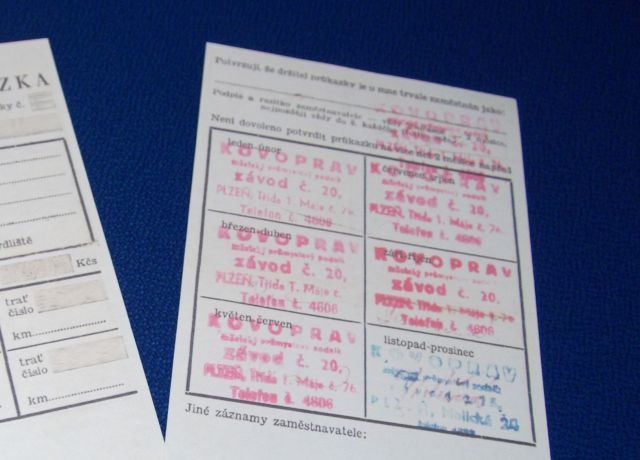 ZKA
ky č.
ydliště
Kčs
trať
číslo
km
trať
číslo
km
Potvrzuji, že držitel průkazky je u mne trvale zaměstnán jako:
Podpis a razítko zaměstnavatele
nejpozději vždy do 5. každého
Není dovoleno potvrdit průkazku na více než 2 měsíce napřed
leden-únor
KOVOPRAV
městský průmyslový podnik
závod č. 20,
PLZEŇ, Třída 1. Máje č. 76
Telefon č. 4606
březen-duben
KOVOPRAV
městský průmyslový podnik
závod č. 20,
PLZEŇ, Třída 1. Máje č.
Telefon č. 4606
květen-červen
KOVOPRAV
městský průmyslový podnik
závod č. 20,
PLZEŇ, Třída 1. Máje č. 76
Telefon č. 4606
červenec-srpen
KOVOPRAV
městský průmyslový podnik
závod č. 20,
PLZEŇ, Třída 1. Máje č. 76
Telefon č. 4606
září-říjen
KOVOPRAV
městský průmyslový podnik
závod č. 20,
PLZEŇ, Třída 1. Máje č. 76
Telefon č. 4606
listopad-prosinec
KOVOPRAV
městský průmyslový podnik
Jiné záznamy zaměstnavatele: